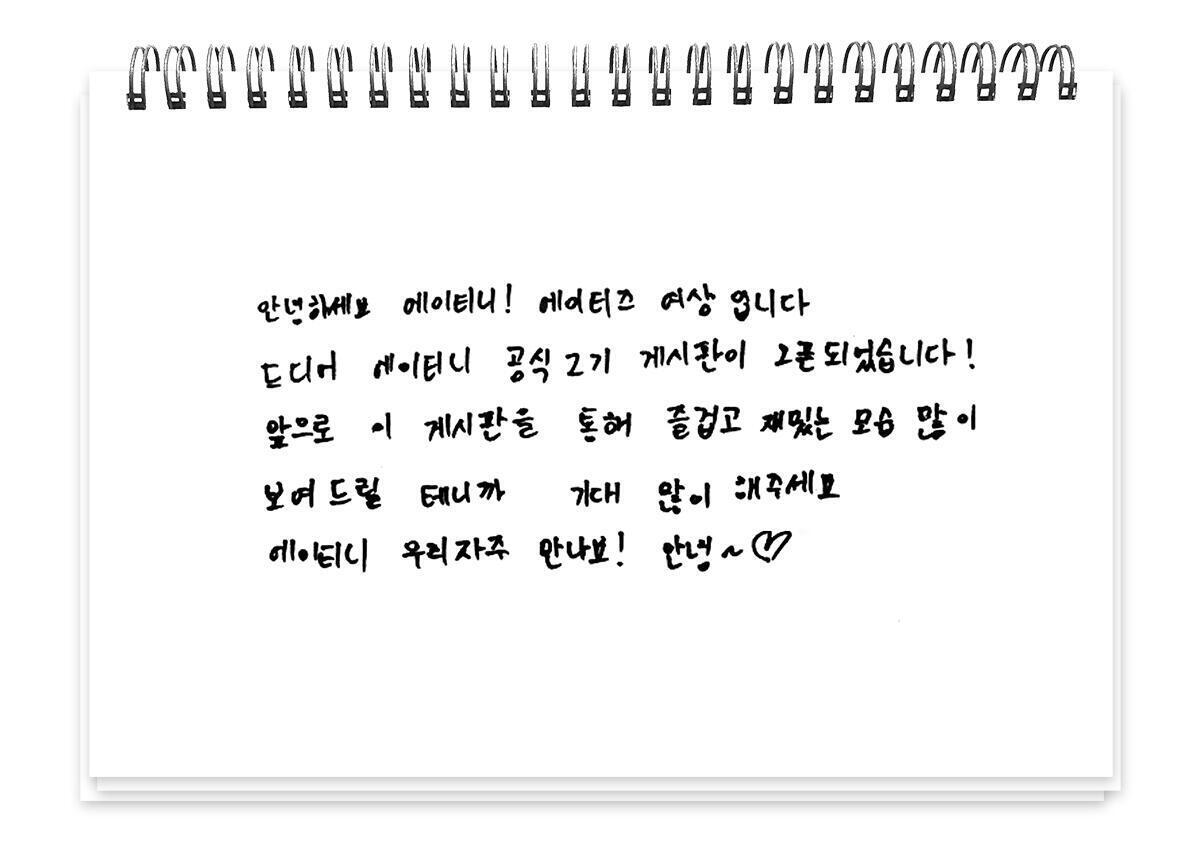 안녕하세요 에이티니! 에이티즈 여상 입니다
드디어 에이티니 공식 2기 게시판이 오픈되었습니다!
앞으로 이 게시판을 통해 즐겁고 재밌는 모습 많이
보여 드릴 테니까 기대 많이 해주세요
에이티니 우리 자주 만나요! 안녕~♡